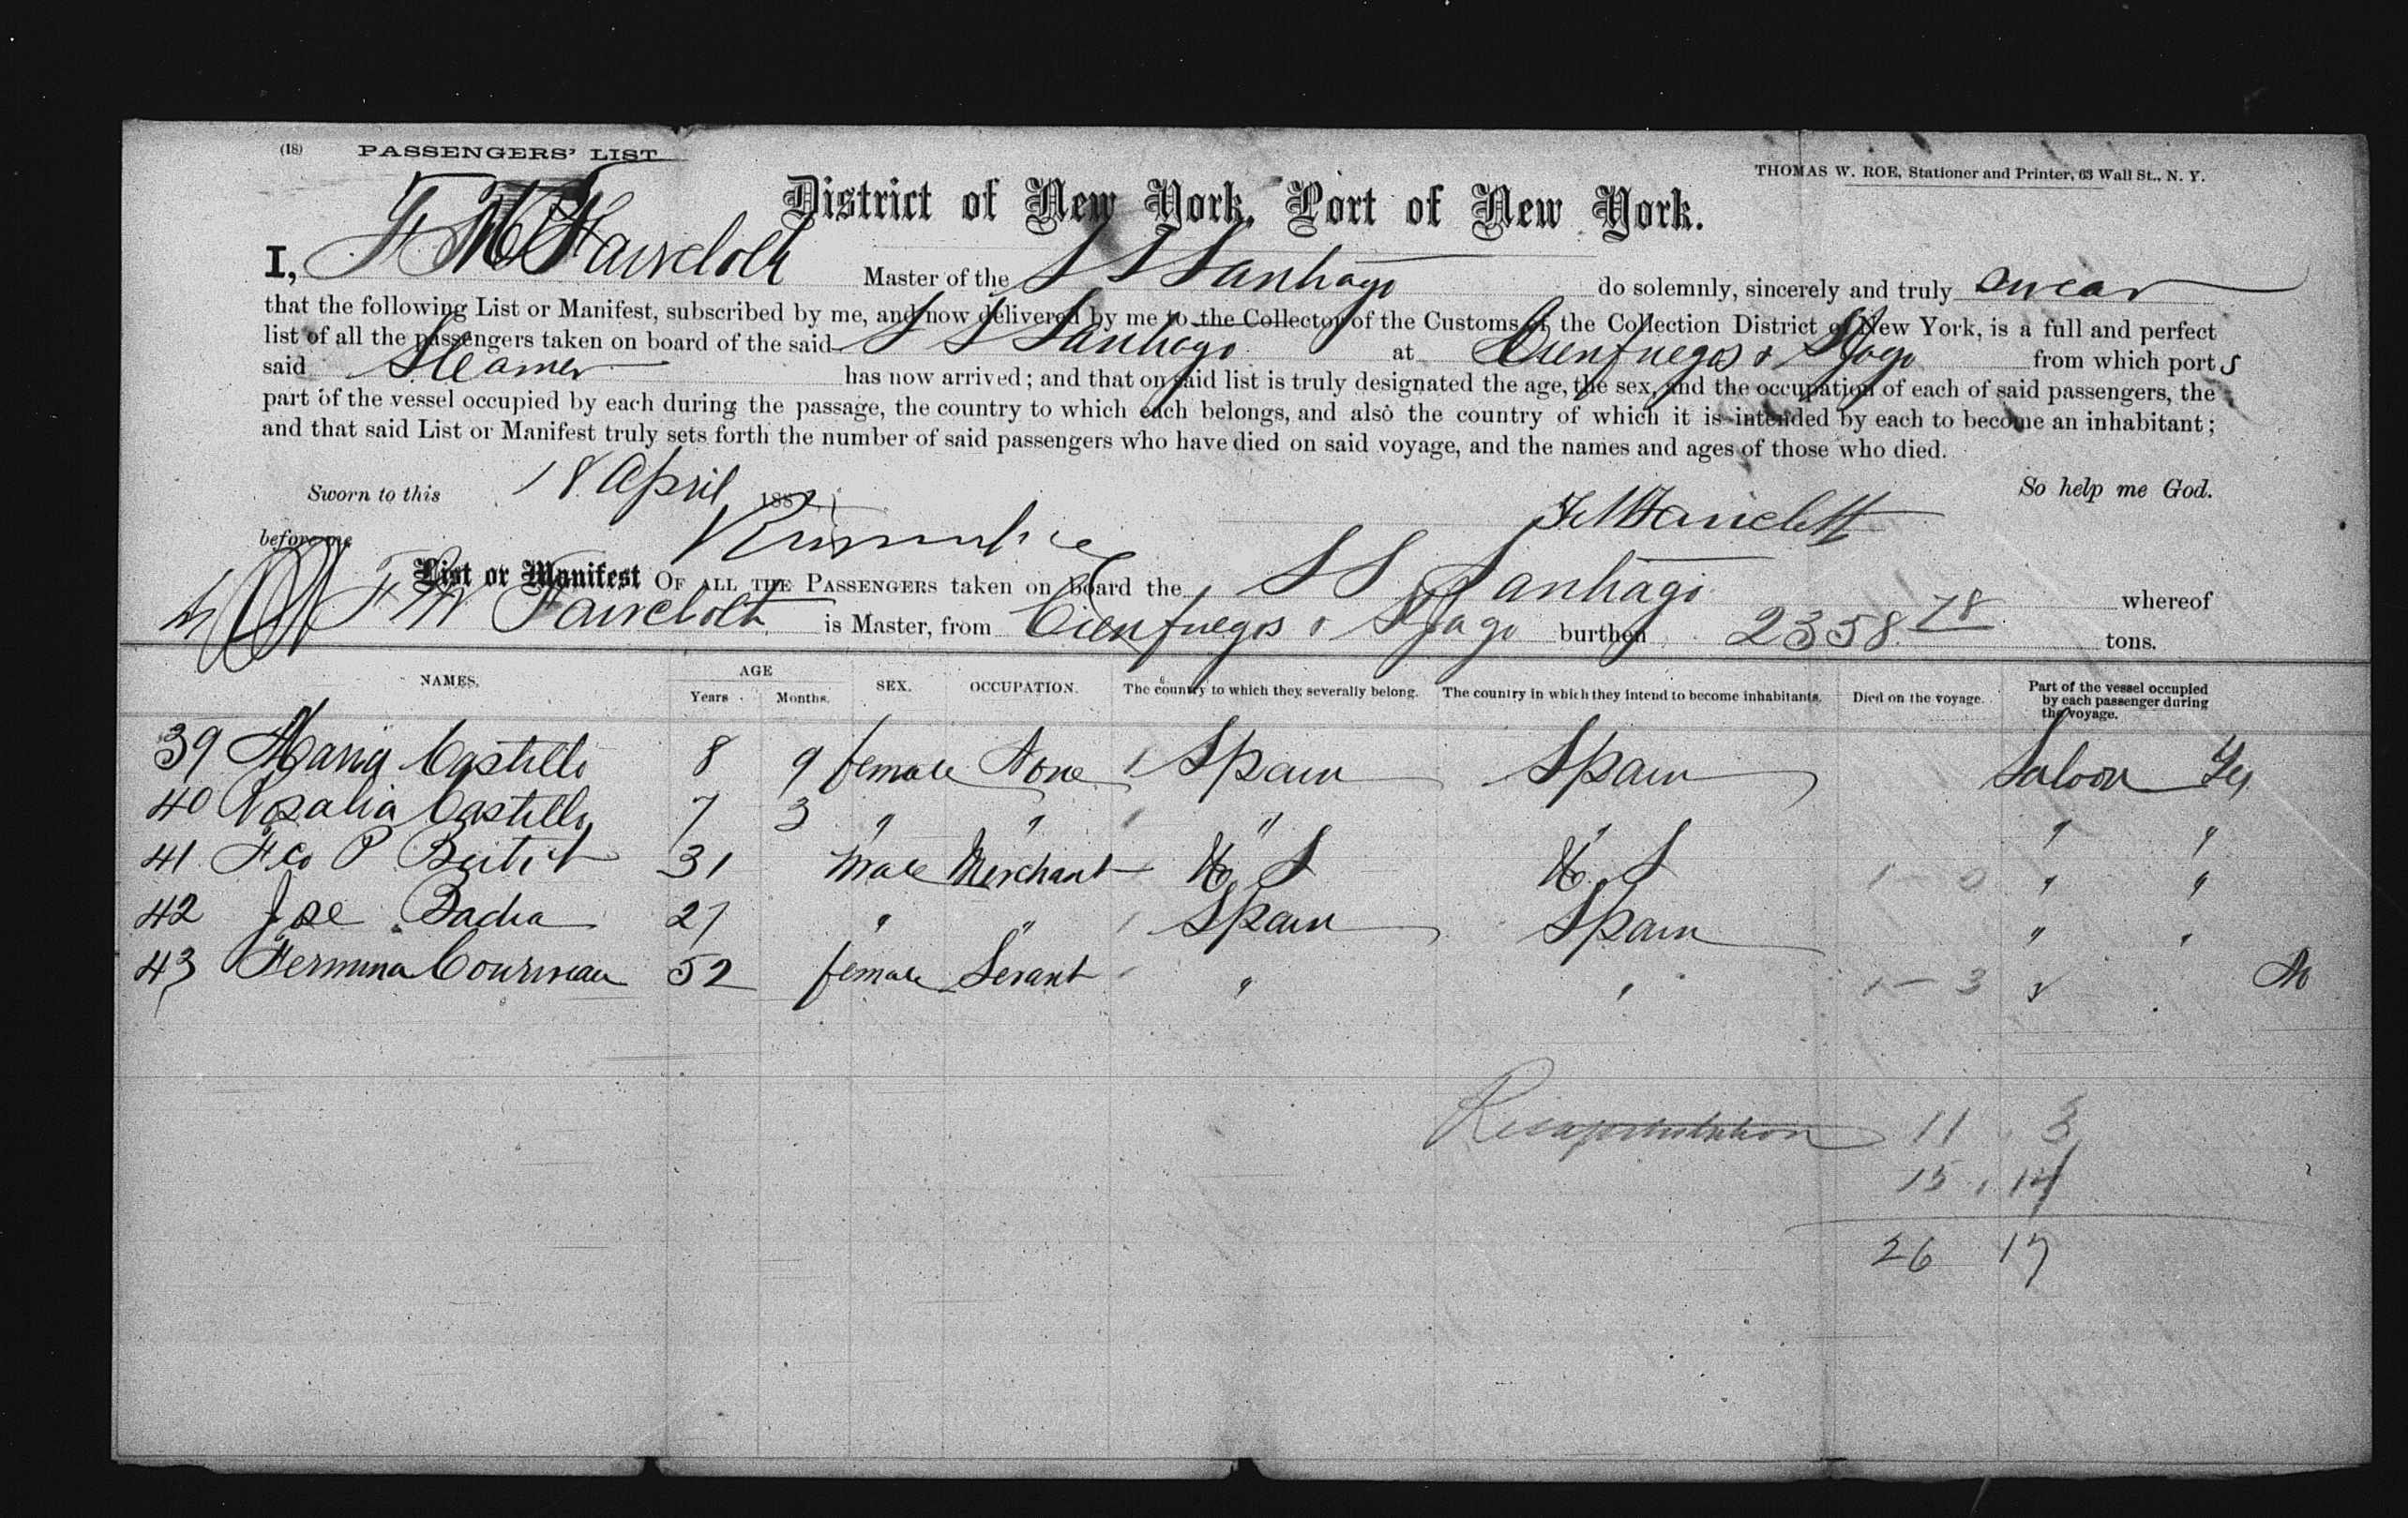 (18) PASSENGERS' LIST
THOMAS W. ROE, Stationer and Printer, 63 Wall St., N. Y.
District of New York, Port of New York.
I, F M Faircloth Master of the S S Santiago do solemnly, sincerely and truly swear
that the following List or Manifest, subscribed by me, and now delivered by me to the Collector of the Customs of the Collection District of New York, is a full and perfect
list of all the passengers taken on board of the said S S Santiago at Cienfuegos & Stjago from which port s
said Steamer has now arrived; and that on said list is truly designated the age, the sex, and the occupation of each of said passengers, the
part of the vessel occupied by each during the passage, the country to which each belongs, and also the country of which it is intended by each to become an inhabitant;
and that said List or Manifest truly sets forth the number of said passengers who have died on said voyage, and the names and ages of those who died.
Sworn to this 18 April 188 So help me God.
before me F M Faircloth
List or Manifest OF ALL THE PASSENGERS taken on board the S S Santiago whereof
F M Faircloth is Master, from Cienfuegos & Stjago burthen 2358 78 tons.
NAMES. AGE Years Months. SEX. OCCUPATION. The country to which they severally belong. The country in which they intend to become inhabitants. Died on the voyage. Part of the vessel occupied by each passenger during the voyage.
39 Maria Castillo 8 9 female None Spain Spain Saloon
40 Rosalia Castillo 7 3 " " " " " "
41 Fco P 31 Male Merchant U S U S 1 - 0 " "
42 Jose Badia 27 " " Spain Spain " "
43 Fermina 52 female Servant " " 1 - 3 " " No
Recapitulation 11 3
15 14
26 17